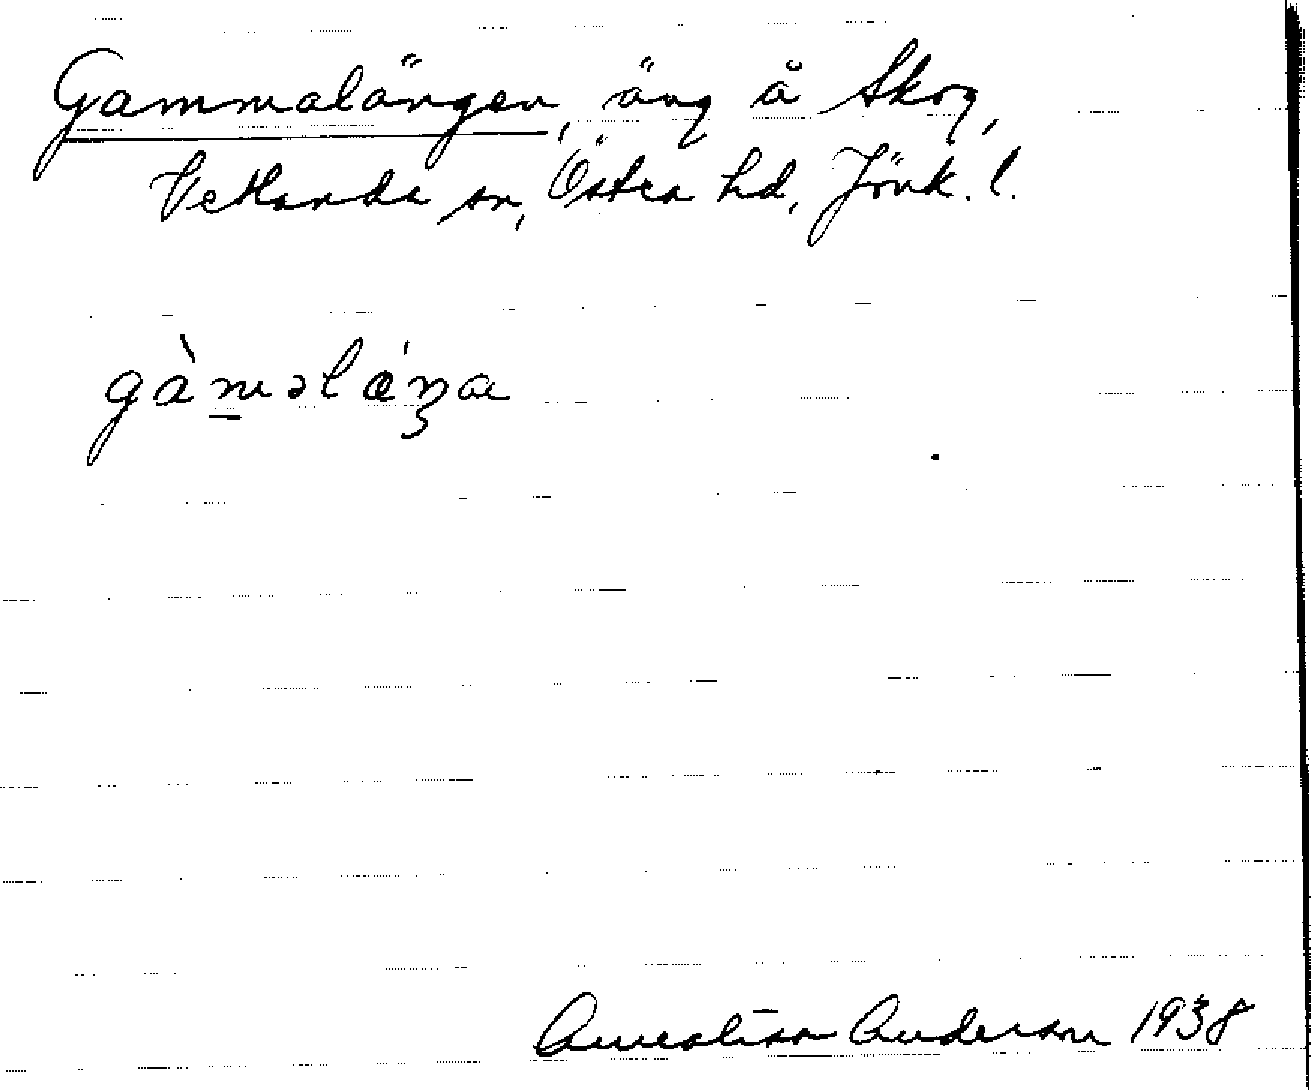 Gammalängen, äng å Skog,
Vetlanda sn, Östra hd, Jönk. l.
gàm̲əlǽŋa
Anderson 1938